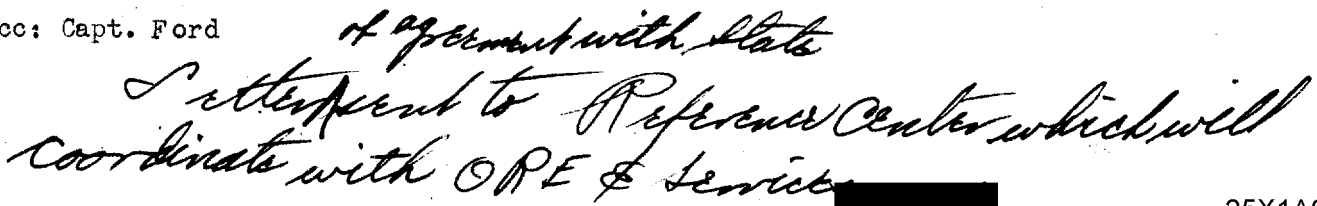 cc: Capt. Ford
of agreement with State
Letter sent to Reference Center which will
coordinate with ORE & Services